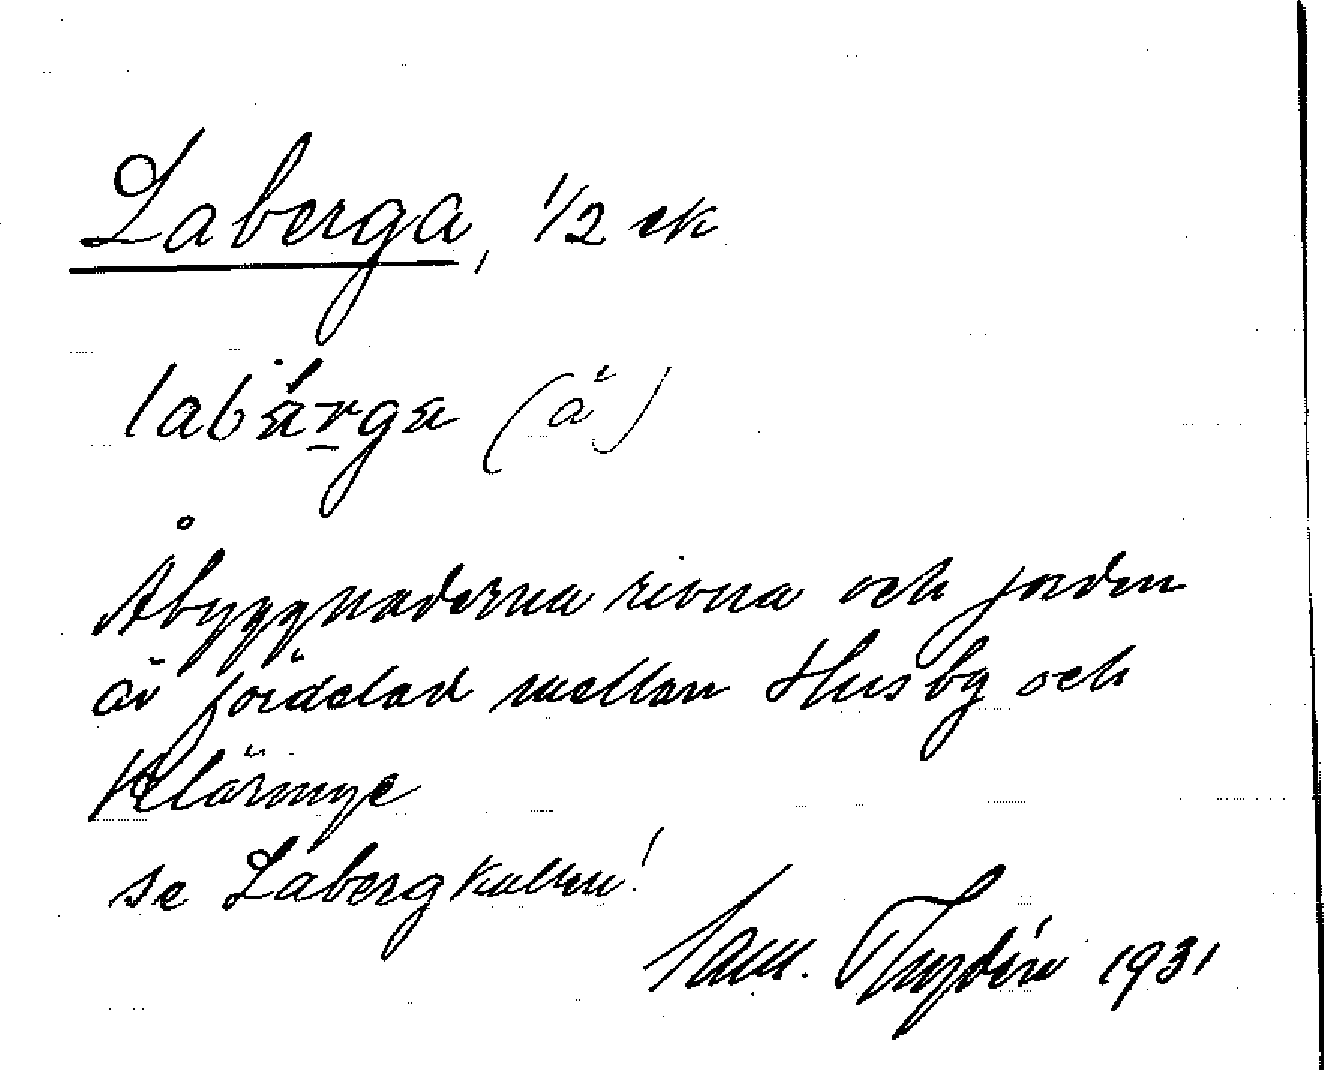 Laberga, 1/2 ek
labärga (ä)
Åbyggnaderna rivna och jorden
är fördelad mellan Husby och
Klärmye
se Labergkullen!
Sam. Thydén 1931